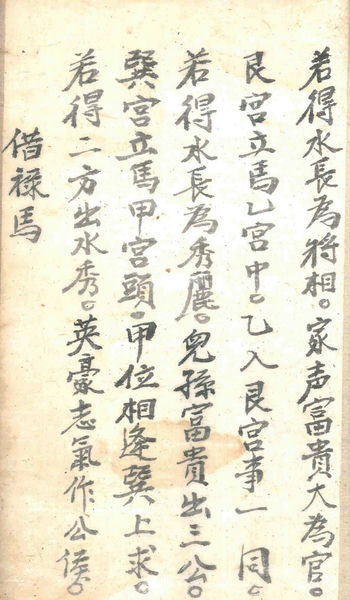 若得水長為将相。家声富貴大為官。
艮宫立馬乙宫中。乙入艮宫事一同。
若得水長為秀麗。兒孫富貴出三公。
巽宫立馬甲宫頭。甲位相逢巽上求。
若得二方出水秀。英豪志氣作公侯。
借祿馬